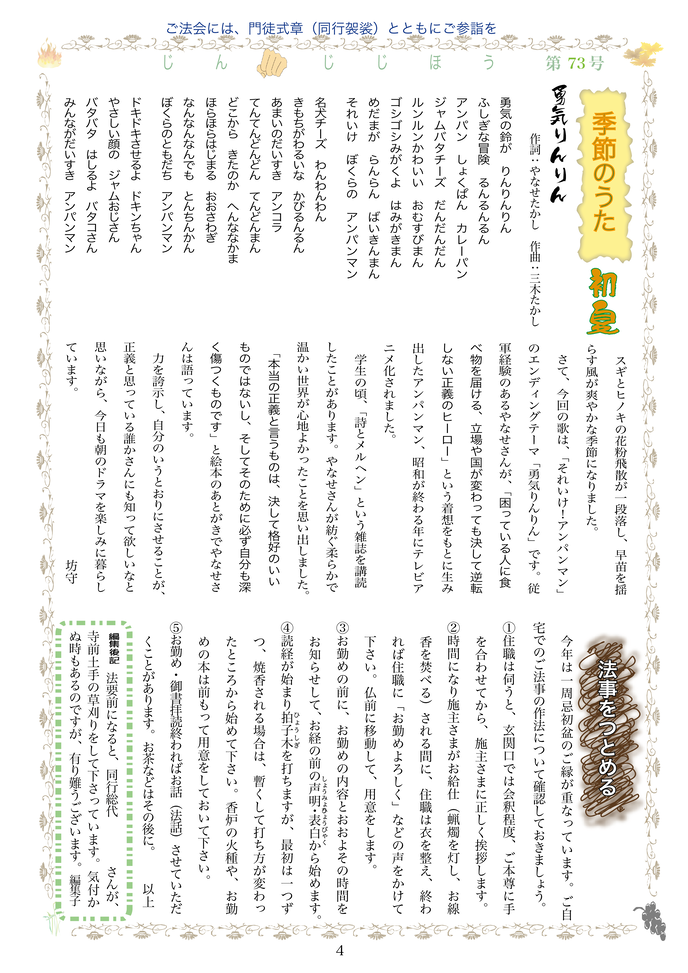 ご法会には、門徒式章（同行袈裟）とともにご参詣を
じん　じじほう　第73号
季節のうた
初夏
勇気りんりん
作詞：やなせたかし　作曲：三木たかし
勇気の鈴が　りんりんりん
ふしぎな冒険　るんるんるん
アンパン　しょくぱん　カレーパン
ジャムバタチーズ　だんだんだん
ルンルンかわいい　おむすびまん
ゴシゴシみがくよ　はみがきまん
めだまが　らんらん　ばいきんまん
それいけ　ぼくらの　アンパンマン
名犬チーズ　わんわんわん
きもちがわるいな　かびるんるん
あまいのだいすき　アンコラ
てんてんどんどん　てんどんまん
どこから　きたのか　へんななかま
ほらほらはじまる　おおさわぎ
なんなんなんでも　とんちんかん
ぼくらのともだち　アンパンマン
ドキドキさせるよ　ドキンちゃん
やさしい顔の　ジャムおじさん
バタバタ　はしるよ　バタコさん
みんながだいすき　アンパンマン
スギとヒノキの花粉飛散が一段落し、早苗を揺
らす風が爽やかな季節になりました。
さて、今回の歌は、「それいけ！アンパンマン」
のエンディングテーマ「勇気りんりん」です。従
軍経験のあるやなせさんが、「困っている人に食
べ物を届ける、立場や国が変わっても決して逆転
しない正義のヒーロー」という着想をもとに生み
出したアンパンマン、昭和が終わる年にテレビア
ニメ化されました。
学生の頃、「詩とメルヘン」という雑誌を講読
したことがあります。やなせさんが紡ぐ柔らかで
温かい世界が心地よかったことを思い出しました。
「本当の正義と言うものは、決して格好のいい
ものではないし、そしてそのために必ず自分も深
く傷つくものです」と絵本のあとがきでやなせさ
んは語っています。
力を誇示し、自分のいうとおりにさせることが、
正義と思っている誰かさんにも知って欲しいなと
思いながら、今日も朝のドラマを楽しみに暮らし
ています。
坊守
法事をつとめる
今年は一周忌初盆のご縁が重なっています。ご自
宅でのご法事の作法について確認しておきましょう。
①住職は伺うと、玄関口では会釈程度、ご本尊に手
を合わせてから、施主さまに正しく挨拶します。
②時間になり施主さまがお給仕（蝋燭を灯し、お線
香を焚べる）される間に、住職は衣を整え、終わ
れば住職に「お勤めよろしく」などの声をかけて
下さい。仏前に移動して、用意をします。
③お勤めの前に、お勤めの内容とおおよその時間を
お知らせして、お経の前の声明・表白から始めます。
しょうみょう
ひょうびゃく
④読経が始まり拍子木を打ちますが、最初は一つず
ひょうしぎ
つ、焼香される場合は、暫くして打ち方が変わっ
たところから始めて下さい。香炉の火種や、お勤
めの本は前もって用意をしておいて下さい。
⑤お勤め・御書拝読終わればお話（法話）させていただ
くことがあります。お茶などはその後に。　以上
編集後記　法要前になると、同行総代　　　さんが、
寺前土手の草刈りをして下さっています。気付か
ぬ時もあるのですが、有り難うございます。編集子
4